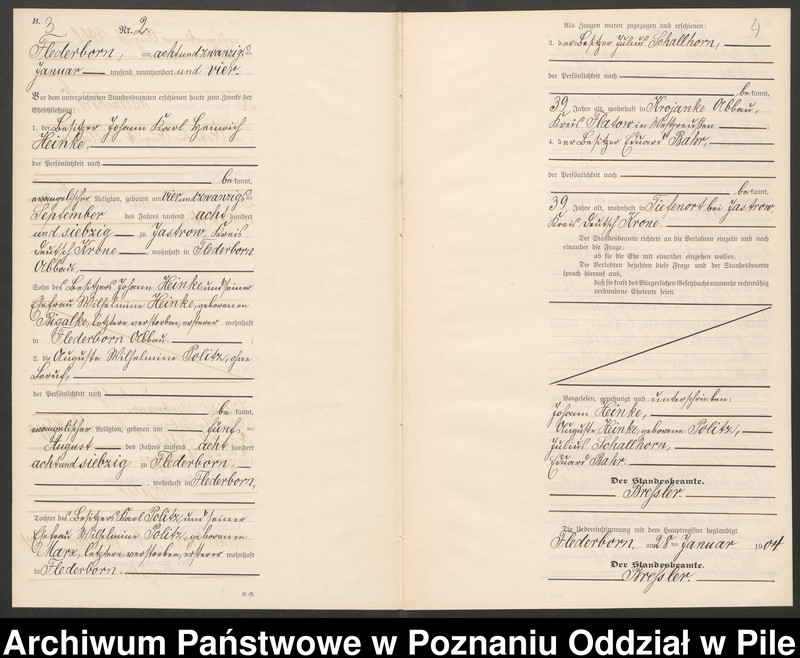 B.
3
Nr. 2.
Flederborn, am achtundzwanzigsten
Januar tausend neunhundert und vier.
Vor dem unterzeichneten Standesbeamten erschienen heute zum Zwecke der
Eheschließung:
1. der Besitzer Johann Karl Heinrich
Heinke,
der Persönlichkeit nach
bekannt,
evangelischer Religion, geboren am vierundzwanzigsten
September des Jahres tausend achthundert
und siebzig zu Jastrow, Kreis
Deutsch Krone, wohnhaft in Flederborn
Abbau,
Sohn des Besitzers Johann Heinke und seiner
Ehefrau Wilhelmine Heinke, geborenen
Bigalke, letztere verstorben, ersterer wohnhaft
in Flederborn Abbau. ;
2. die Auguste Wilhelmine Politz, ohne
Beruf,
der Persönlichkeit nach
bekannt,
evangelischer Religion, geboren am fünften
August des Jahres tausend achthundert
achtundsiebzig zu Flederborn.
, wohnhaft in Flederborn,
Tochter des Besitzers Karl Politz und seiner
Ehefrau Wilhelmine Politz, geborenen
Marx, letztere verstorben, ersterer wohnhaft
in Flederborn.
4
Als Zeugen waren zugezogen und erschienen:
3. der Besitzer Julius Schallhorn,
der Persönlichkeit nach
bekannt,
39 Jahre alt, wohnhaft in Krojanke Abbau,
Kreis Flatow in Westpreußen ;
4. der Besitzer Eduard Bahr,
der Persönlichkeit nach
bekannt,
39 Jahre alt, wohnhaft in Tiefenort bei Jastrow,
Kreis Deutsch Krone.
Der Standesbeamte richtete an die Verlobten einzeln und nach
einander die Frage:
ob sie die Ehe mit einander eingehen wollen.
Die Verlobten bejahten diese Frage und der Standesbeamte
sprach hierauf aus,
daß sie kraft des Bürgerlichen Gesetzbuchs nunmehr rechtmäßig
verbundene Eheleute seien.
Vorgelesen, genehmigt und unterschrieben:
Johann Heinke,
Auguste Heinke, geborene Politz,
Julius Schallhorn,
Eduard Bahr.
Der Standesbeamte.
Bressler.
Die Uebereinstimmung mit dem Hauptregister beglaubigt
Flederborn, am 28ten Januar 1904
Der Standesbeamte.
Bressler.
Archiwum Państwowe w Poznaniu Oddział w Pile